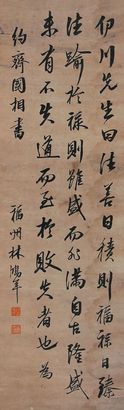 伊川先生曰德善日積則福祿日臻
德踰於祿則雖盛而非滿自古隆盛
未有不失道而至於敗失者也 為
約齊國相書
福州林鴻年